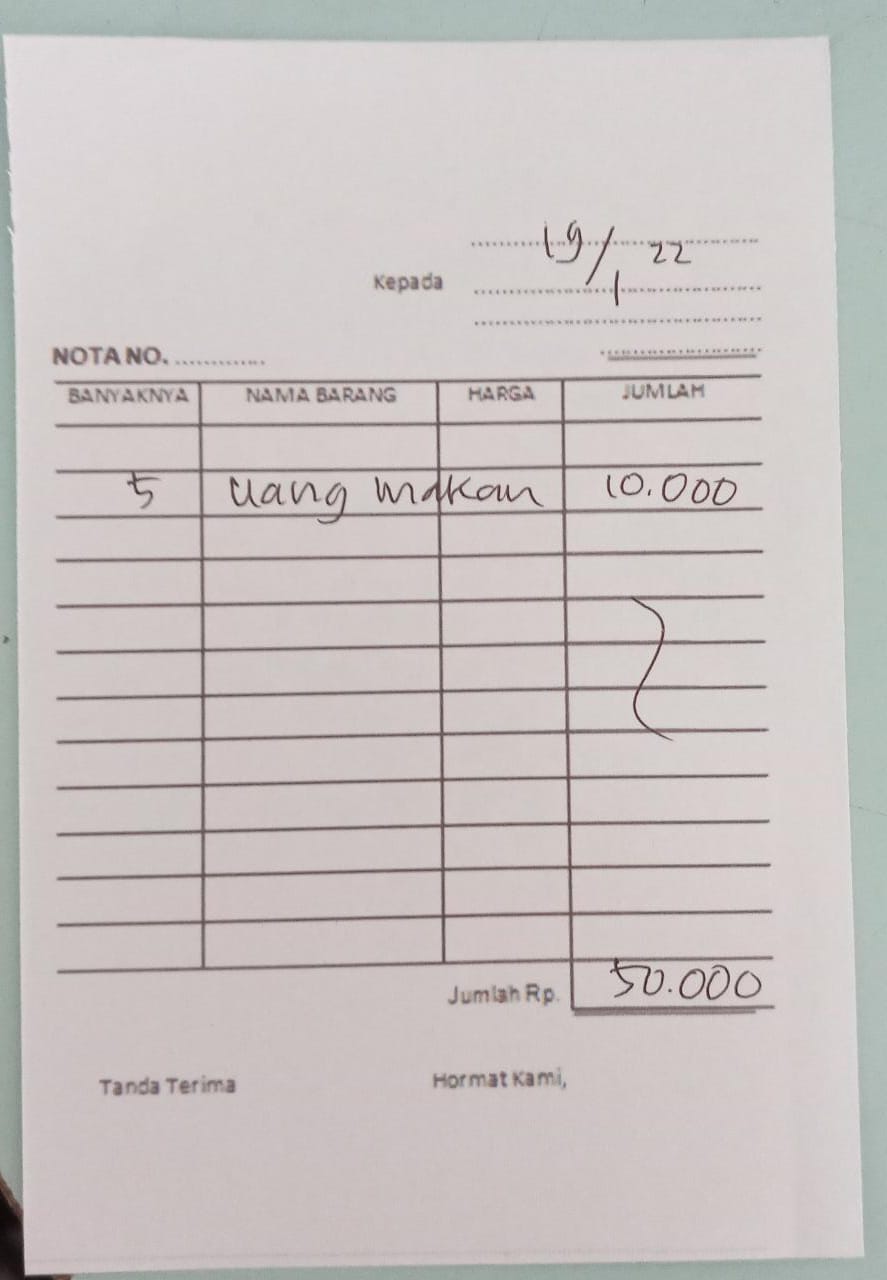 19/1 22
Kepada
NOTA NO. .............
BANYAKNYA NAMA BARANG HARGA JUMLAH
5 uang makan 10.000
Jumlah Rp. 50.000
Tanda Terima Hormat Kami,